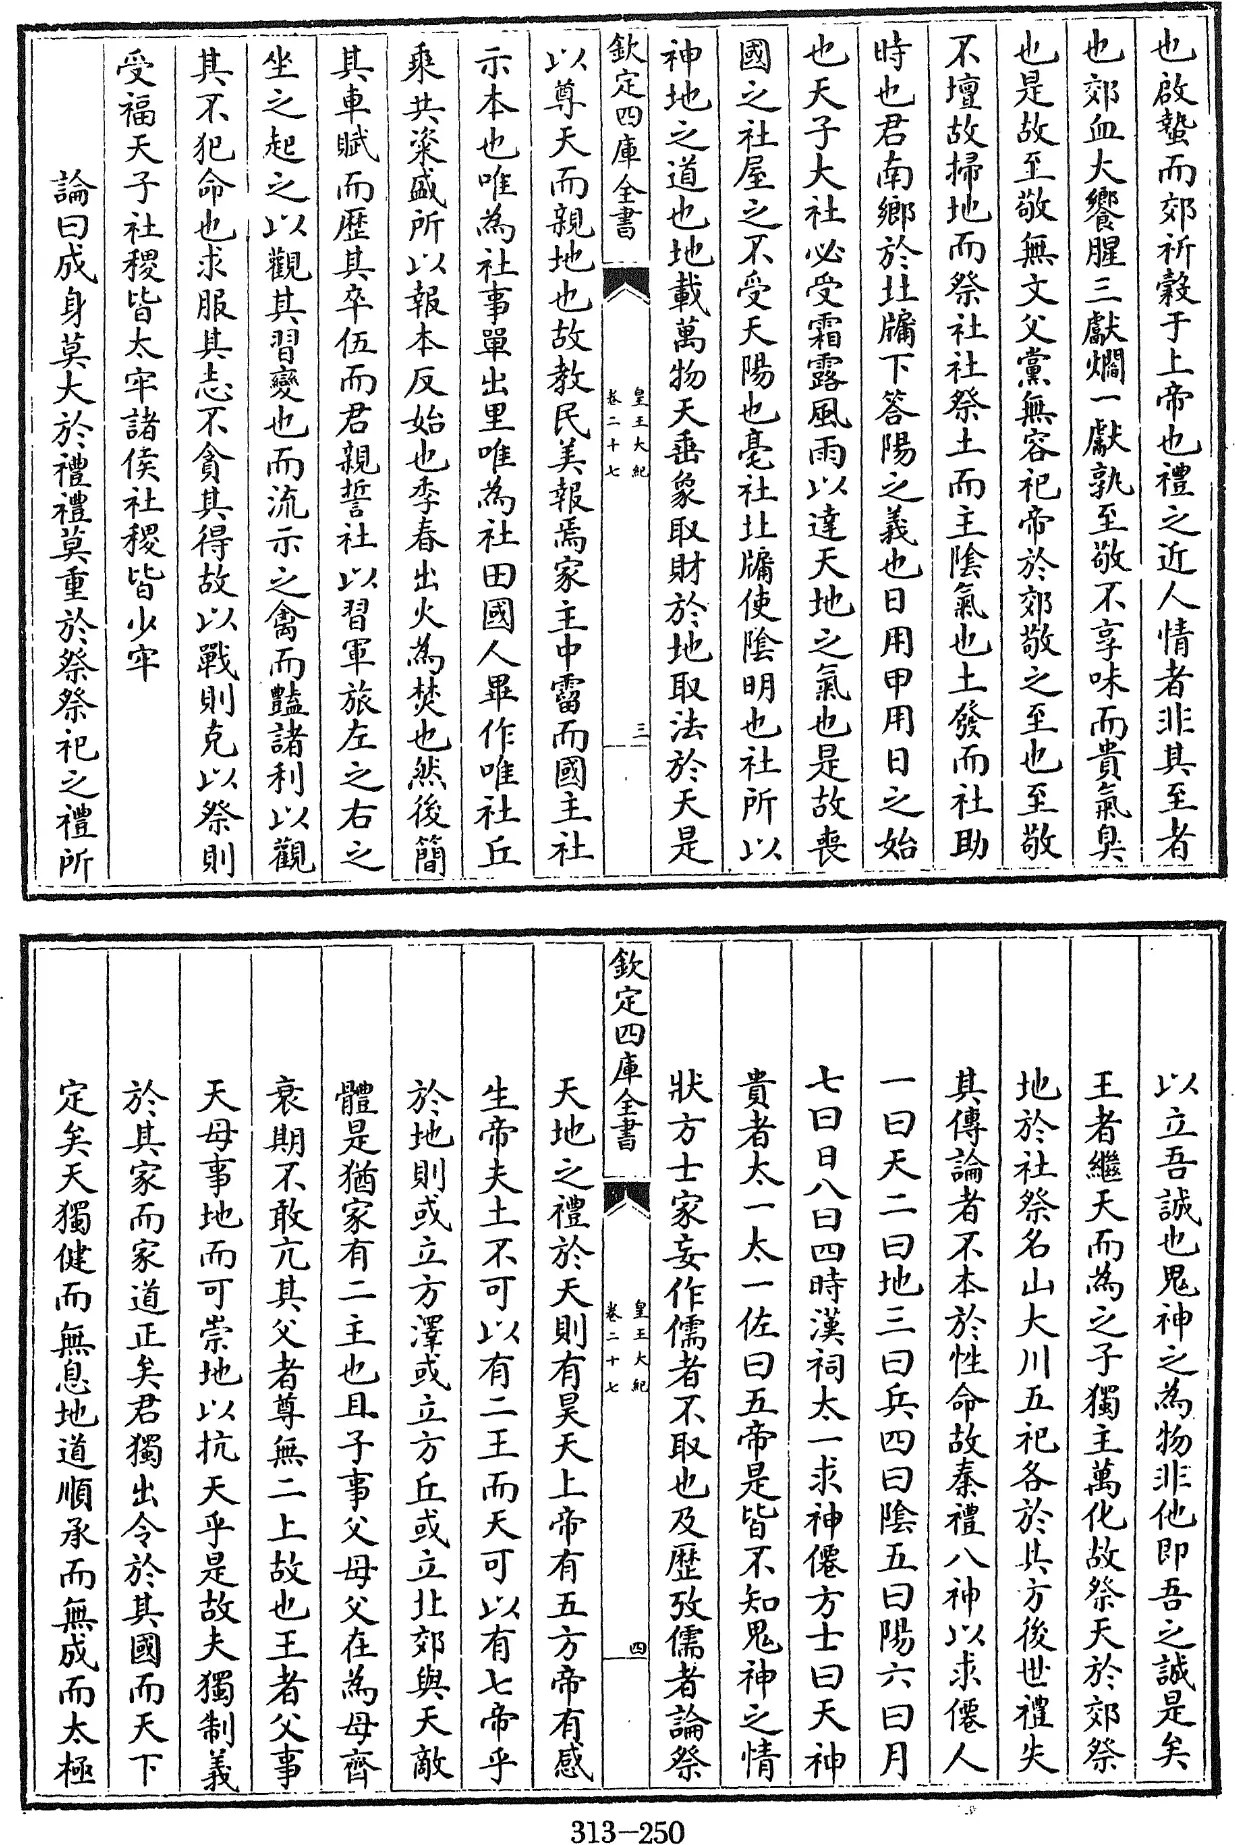 也啟蟄而郊祈穀于上帝也禮之近人情者非其至者
也郊血大饗腥三獻爓一獻孰至敬不享味而貴氣臭
也是故至敬無文父黨無容祀帝於郊敬之至也至敬
不壇故掃地而祭社社祭土而主陰氣也土發而社助
時也君南鄉於北牖下答陽之義也日用甲用日之始
也天子大社必受霜露風雨以達天地之氣也是故喪
國之社屋之不受天陽也亳社北牖使陰明也社所以
神地之道也地載萬物天垂象取財於地取法於天是
欽定四庫全書
皇王大紀
卷二十七
三
以尊天而親地也故教民美報焉家主中霤而國主社
示本也唯為社事單出里唯為社田國人畢作唯社丘
乘共粢盛所以報本反始也季春出火為焚也然後簡
其車賦而歷其卒伍而君親誓社以習軍旅左之右之
坐之起之以觀其習變也而流示之禽而豔諸利以觀
其不犯命也求服其志不貪其得故以戰則克以祭則
受福天子社稷皆太牢諸侯社稷皆少牢
論曰成身莫大於禮禮莫重於祭祭祀之禮所
以立吾誠也鬼神之為物非他即吾之誠是矣
王者繼天而為之子獨主萬化故祭天於郊祭
地於社祭名山大川五祀各於其方後世禮失
其傳論者不本於性命故秦禮八神以求僊人
一曰天二曰地三曰兵四曰陰五曰陽六曰月
七曰日八曰四時漢祠太一求神僊方士曰天神
貴者太一太一佐曰五帝是皆不知鬼神之情
狀方士家妄作儒者不取也及歷攷儒者論祭
欽定四庫全書
皇王大紀
卷二十七
四
天地之禮於天則有昊天上帝有五方帝有感
生帝夫土不可以有二王而天可以有七帝乎
於地則或立方澤或立方丘或立北郊與天敵
體是猶家有二主也且子事父母父在為母齊
衰期不敢亢其父者尊無二上故也王者父事
天母事地而可崇地以抗天乎是故夫獨制義
於其家而家道正矣君獨出令於其國而天下
定矣天獨健而無息地道順承而無成而太極
313-250